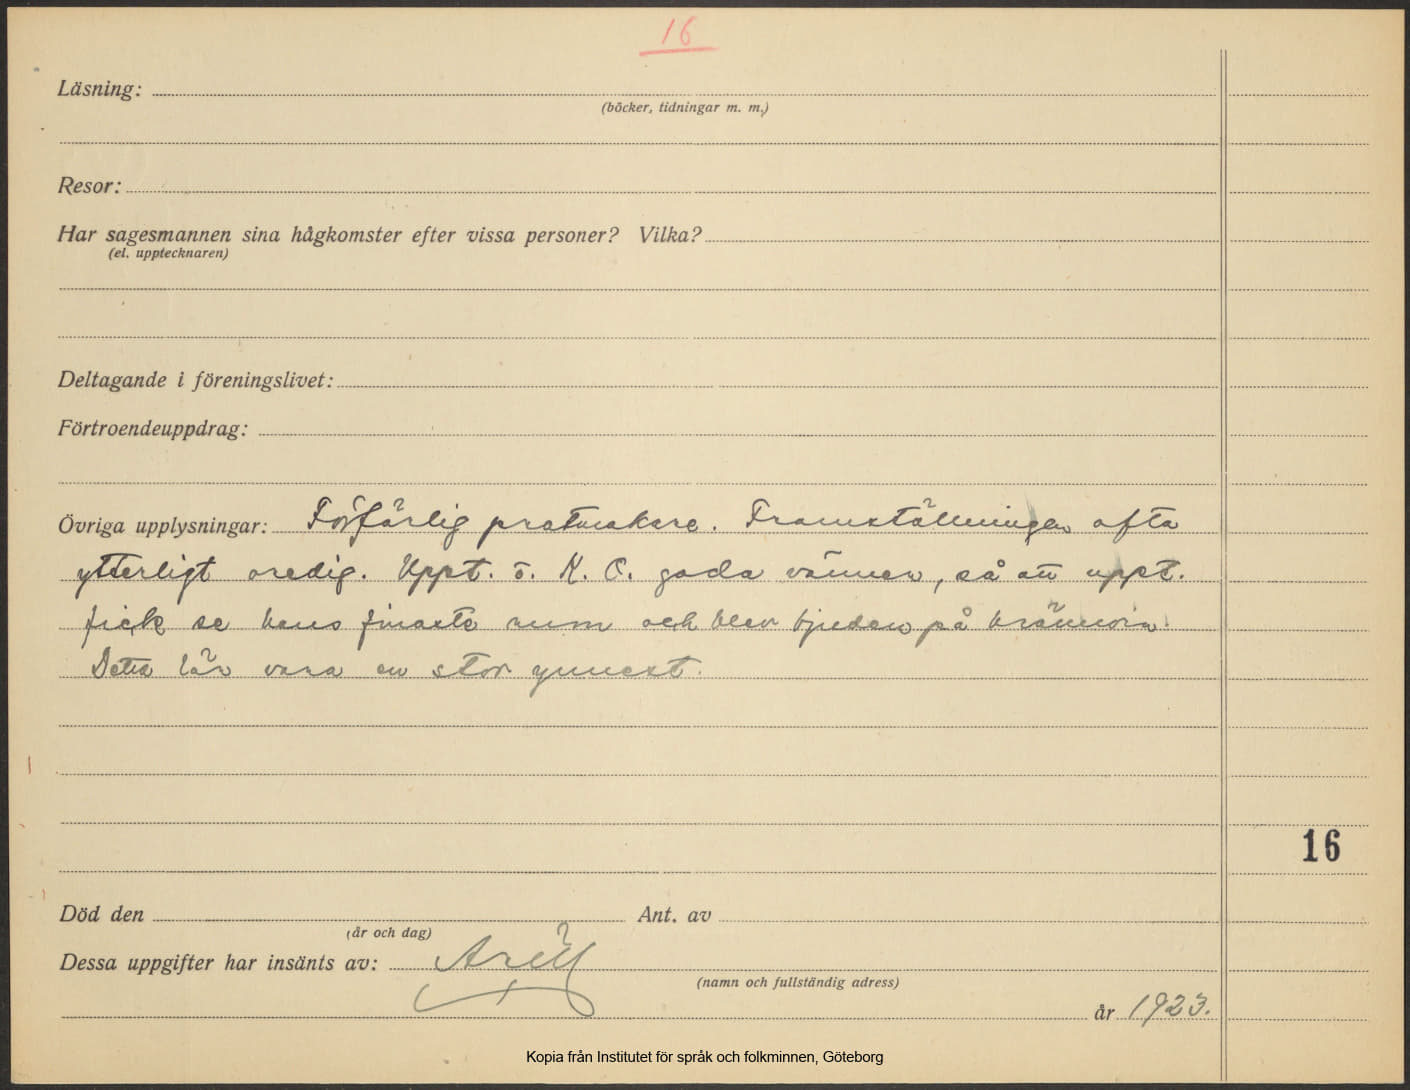 16
Läsning:
(böcker, tidningar m. m.)
Resor:
Har sagesmannen sina hågkomster efter vissa personer? Vilka?
(el. upptecknaren)
Deltagande i föreningslivet:
Förtroendeuppdrag:
Övriga upplysningar: Förfärlig pratmakare. Framställningen ofta
ytterligt oredig. Uppt. o. K. O. goda vänner, så att uppt.
fick se hans finaste rum och blev bjuden på brännvin.
Detta lär vara en stor ynnest.
16
Död den Ant. av
(år och dag)
Dessa uppgifter har insänts av:
(namn och fullständig adress)
år 1923.
Kopia från Institutet för språk och folkminnen, Göteborg